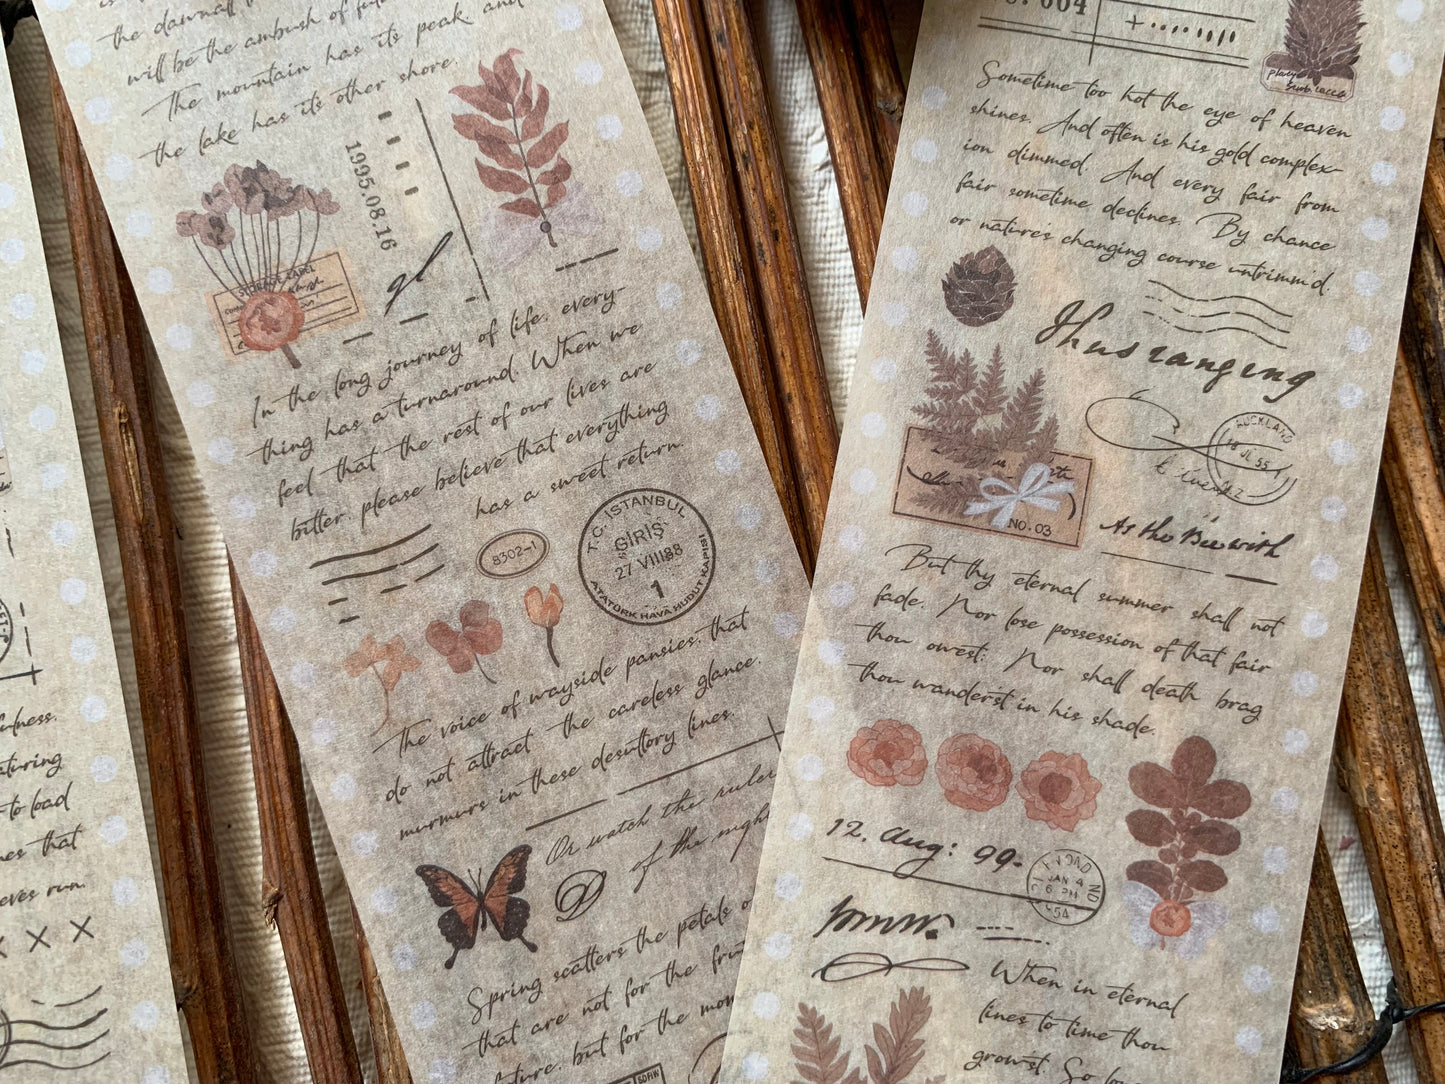 fulness.
aturing
-to load
nes that
eves run.
the dawnfall
will be the ambush of
The mountain has its peak and
the lake has its other shore.
1995.08.16
gl
In the long journey of life, every-
thing has a turnaround. When we
feel that the rest of our lives are
bitter, please believe that everything
has a sweet return.
8302-1
T.C. İSTANBUL
GİRİŞ
27 VIII 88
1
ATATÜRK HAVA HUDUT KAPISI
The voice of wayside pansies, that
do not attract the careless glance,
murmurs in these desultory lines.
Or watch the
of the night
Spring scatters the petals o
that are not for the fru
ture, but for the mom
SOFIW
004
Sometime too hot the eye of heaven
shines. And often is his gold complex-
ion dimmed. And every fair from
fair sometime declines. By chance
or natures changing course untrimm'd.
Thus ranging
AUCKLAND
18 JL 55
N.Z
NO. 03
As the Bee with
But thy eternal summer shall not
fade. Nor lose possession of that fair
thou owest; Nor shall death brag
thou wanderst in his shade.
12. Aug: 99.
JAN 4
6 PM
When in eternal
lines to time thou
growst. So long